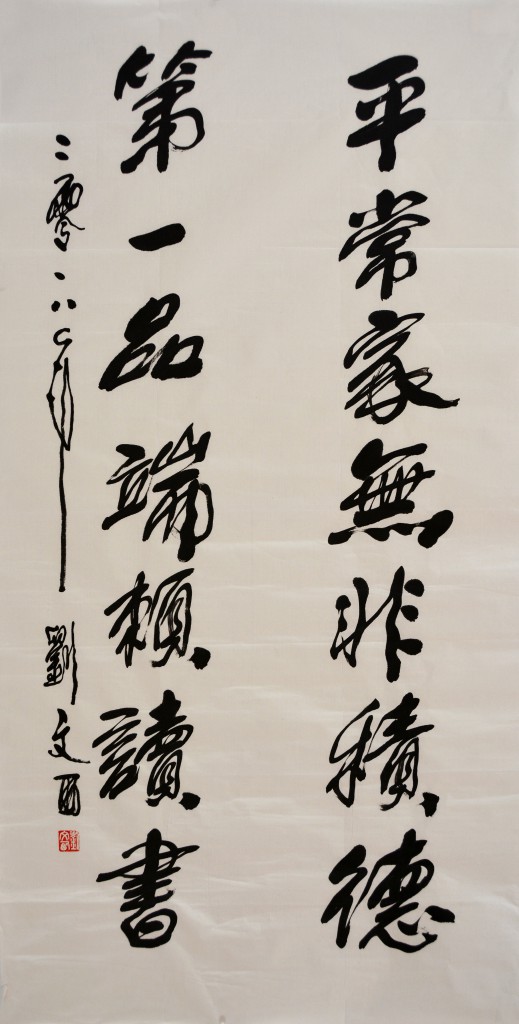 平常家無非積德
第一品端賴讀書
二零一八年
劉文西